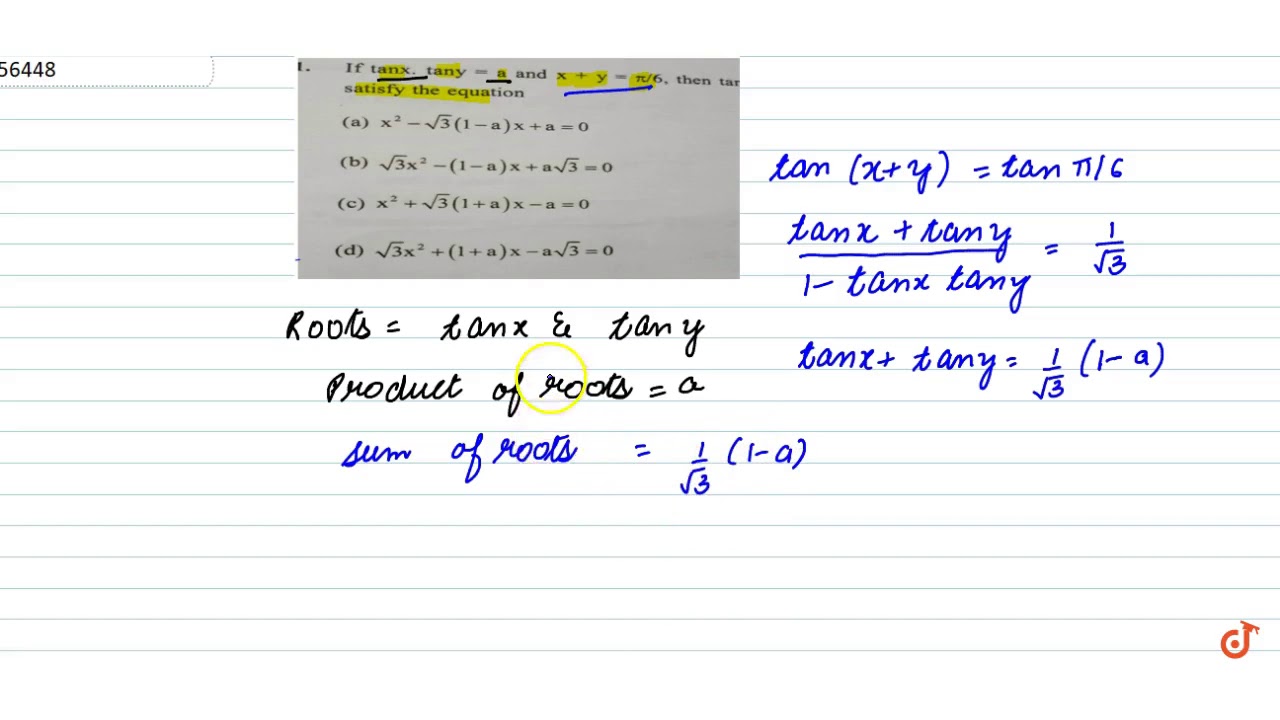 56448
1. If tanx. tany = a and x + y = π/6, then tan
satisfy the equation
(a) x² − √3(1−a)x + a = 0
(b) √3x² − (1−a)x + a√3 = 0
(c) x² + √3(1+a)x − a = 0
(d) √3x² + (1+a)x − a√3 = 0
tan (x+y) = tan π/6
tanx + tany / 1 - tanx tany = 1/√3
tanx + tany = 1/√3 (1-a)
Roots = tanx & tany
Product of roots = a
sum of roots = 1/√3 (1-a)